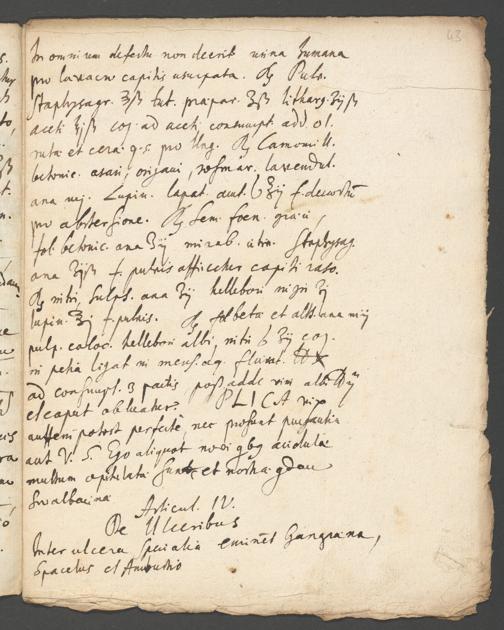 43
In omnium defectu non deerit urina humana
pro lavacro capitis usurpata. ℞ Pulv.
staphysagr. ʒß tut. præpar. ʒß litharg. ʒijß
aceti ʒijß coq. ad aceti consumpt. add. ol.
rutæ et cera q. s. pro Ung. ℞ Camomill.
betonic. asari, origani, rosmar. lavendul.
ana mj. Lupin. lapat. acut. ʒij f. decoctū
pro abstersione. ℞ Sem. foen. græci,
fol. betonic. ana ʒij mirab. citrin. Staphysag.
ana ʒijß f. pulvis affricetur capiti raso.
℞ nitri, sulph. ana ʒij hellebori nigri ʒj
lupin. ʒj f. pulvis. ℞ fol. betæ et alth. ana mij
pulp. coloc. hellebori albi, nitri ʒij coq.
in petia ligat. in aq. fluviat.
ad consumpt. 3 partis post adde vini albi
et caput abluatur. PLICA vix
auttem potest perfecte nec prosunt purgantia
aut V. S. Ego aliquot novi qbg acidulæ
multum opitulatæ sunt et nostra
Swalbacina
Articul. IV.
De Ulceribus
Inter ulcera specialia eminēt Gangræna,
Spacelus et Ambustio